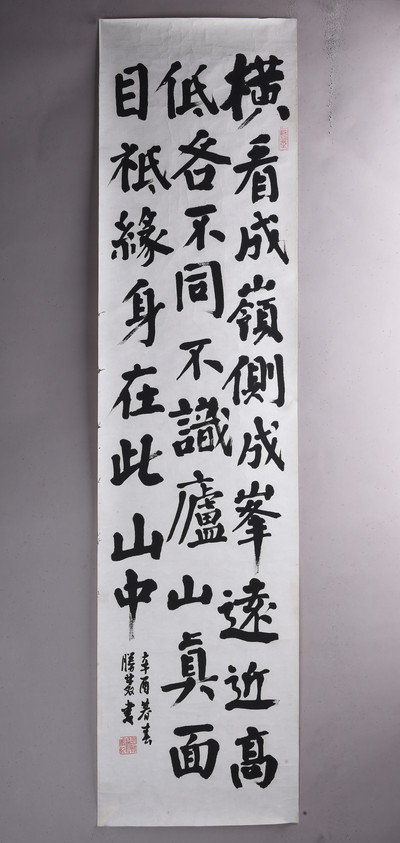 橫看成嶺側成峯遠近高
低各不同不識廬山真面
目祇緣身在此山中
辛酉暮春
勝裳書